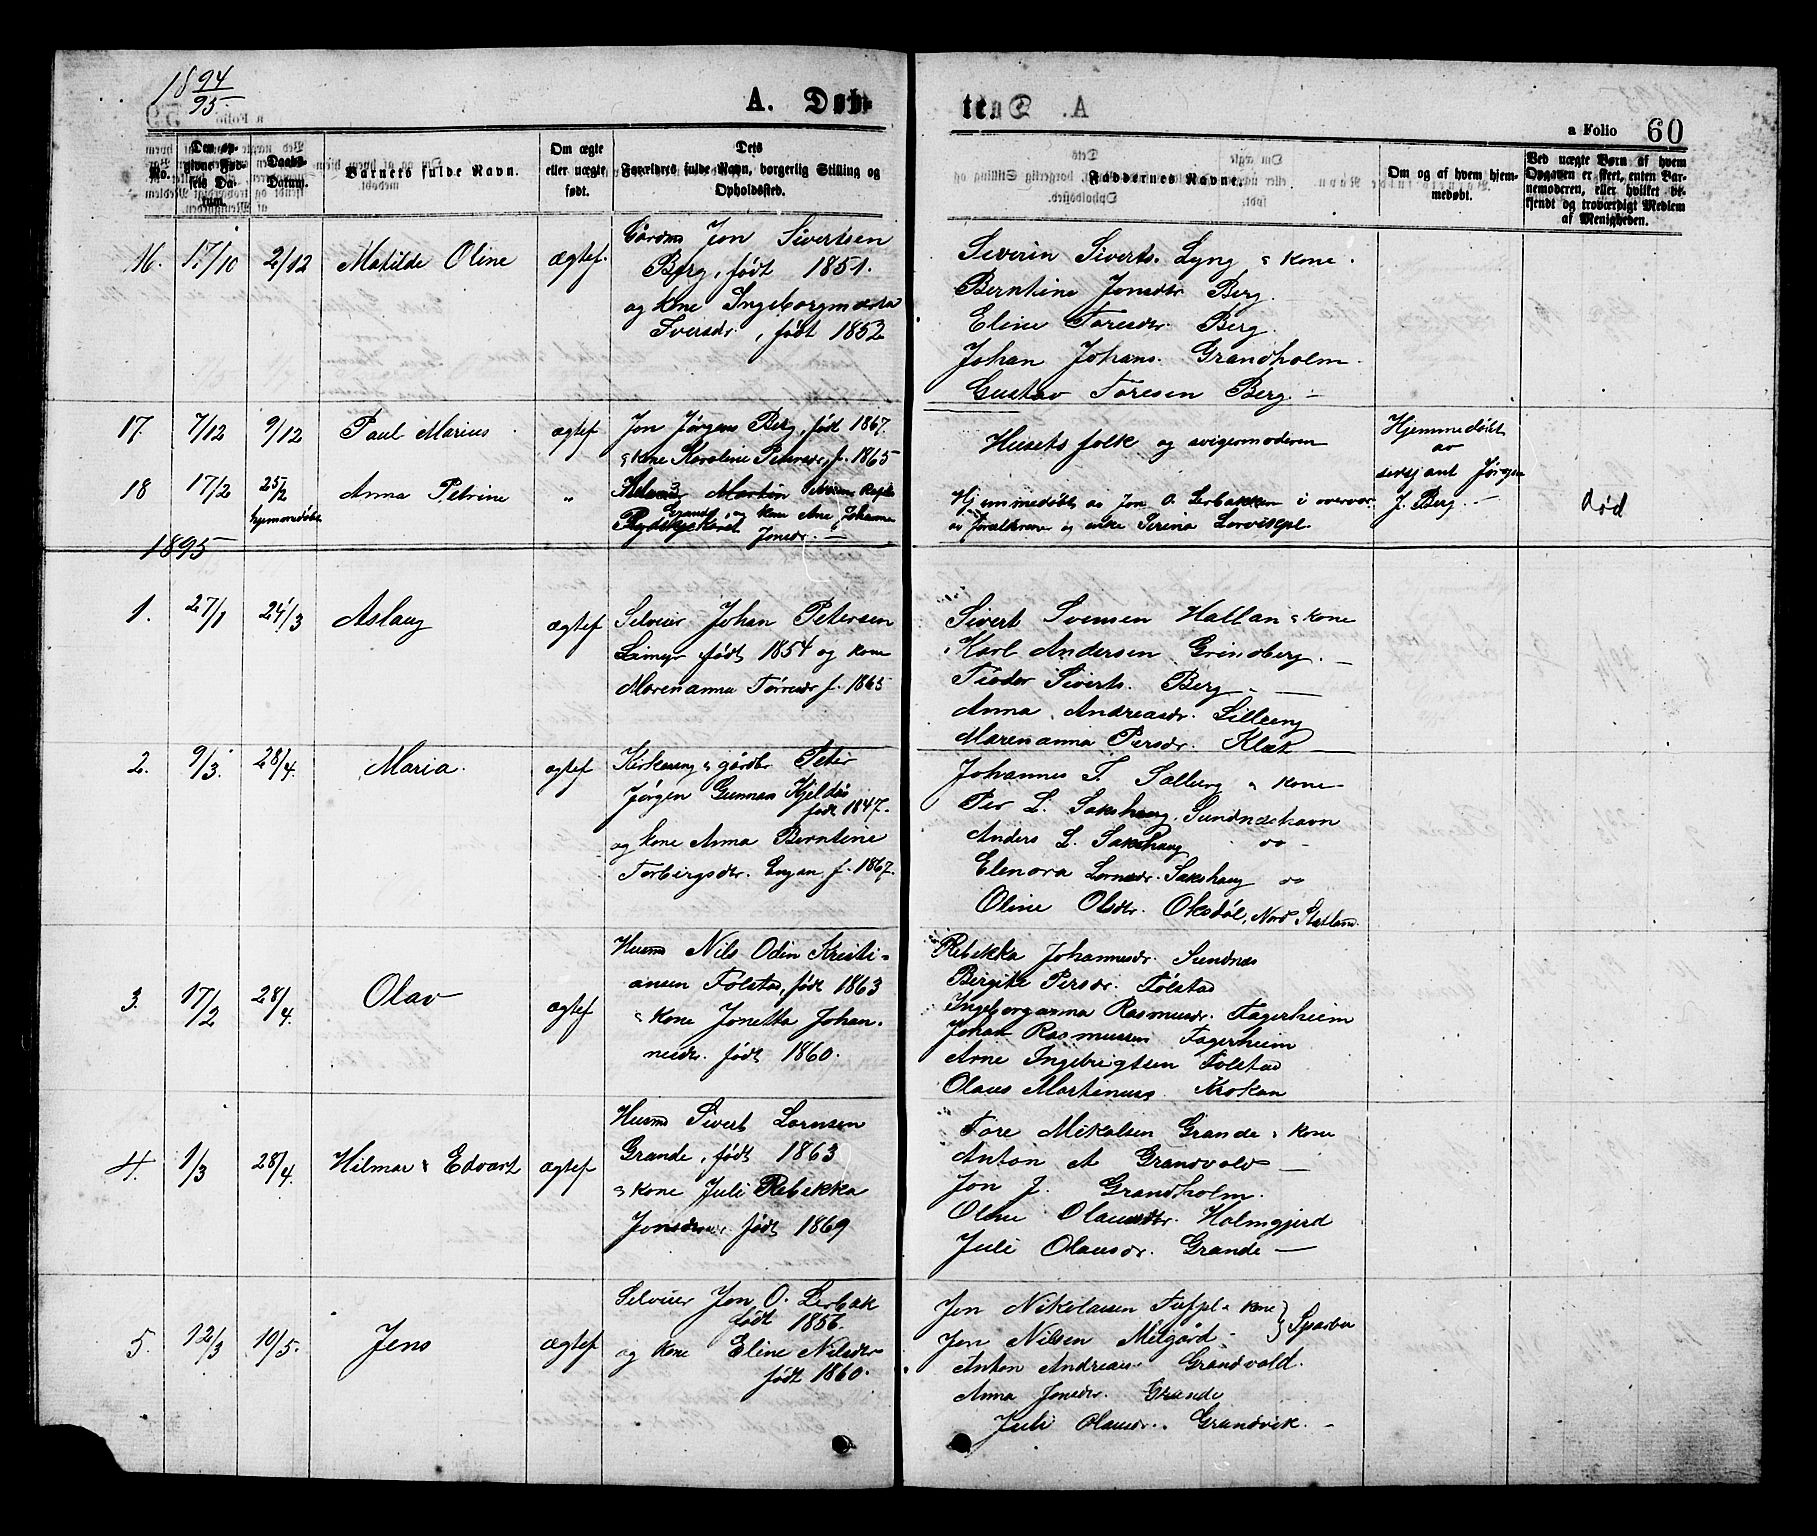 18 94/95.
A. Døb-
ten
a Folio 60
No.
Den opgivne Fødsels Datum.
Daabs-Datum.
Barnets fulde Navn.
Om ægte eller uægte født.
Dets Forældres fulde Navn, borgerlig Stilling og Opholdssted.
Faddernes Navne.
Om og af hvem hjemmedøbt.
Ved uægte Børn af hvem Opgaven er skeet, enten Barnemoderen, eller hvilket vitsendt og troværdigt Medlem af Menigheden.
16. 17/10 2/12 Matilde Oline ægtef.
Gårdm Jon Sivertsen
Berg, født 1851.
og kone Ingeborgmarta
Iversdr, født 1852
Severin Siverts. Lyng & kone.
Berntine Jonsdr Berg.
Eline Toresdr. Berg.
Johan Johans. Grandholm.
Gustav Toresen Berg –
17. 7/12 9/12 Paul Marius ægtef
Jon Jørgens Berg, født 1867.
& kone Karoline Petersdr, f. 1865
Husets folk og svigermoderen
Hjemmedøbt
av
sersjant Jørgen
J. Berg. –
18 17/2 25/2 hjemmedøbt Anna Petrine "
Martin
Grande, og kone Ane Johanna
Jonsdr. –
Hjemmedøbt av Jon O. Lerbakken i overvær
av foreldrene og enke
død
1895
1. 27/1 24/3 Aslaug ægtef
Selveier Johan Petersen
Limyr, født 1854 og kone
Marenanna Torresdr f. 1865
Sivert Svensen Hallan & kone
Karl Andersen Grindberg. –
Tiodor Siverts. Berg. –
Anna Andreasdr. Lilleeng
Marenanna Persdr. Klæt –
2. 9/3. 28/4. Maria. ægtef
Kirkesang. & gårdbr Peter
Jørgen Gunnars Kjeldås
født 1847.
og kone Anna Berntine
Torbergsdr. Engan, f. 1867.
Johannes T. Solberg & kone –
Per L. Sakshaug, Sundnæshavn
Anders L. Sakshaug do –
Elenora Lornsdr. Sakshaug do
Oline Olsdr. Oksdøl, Nord Statland.
3. 17/2 28/4. Olav ægtef
Husmd Nils Odin Kristi-
ansen Følstad, født 1863
& kone Jonetta Johan-
nesdr. født 1860.
Rebekka Johannesdr. Sundnæs
Birgitte Persdr. Følstad
Ingeborganna Rasmusdr. Fagerheim
Johan Rasmussen Fagerheim
Arne Ingebrigtsen Følstad
Olaus Martinus. Krokan
4. 1/3 28/4. Hilmar Edvart ægtef
Husmd Sivert Lornsen
Grande, født 1863
& kone Juli Rebekka
Jonsdr født 1869
Tore Mikalsen Grande & kone
Anton A Grandvold –
Jon J. Grandholm.
Oline Olausdr. Holmgjerd
Juli Olausdr. Grande –
5. 12/3 19/5. Jens ægtef
Selveier Jon O. Lerbak
født 1856.
og kone Eline Nilsdr
født 1860.
Jon Nikolausen Tufpl & kone } Sparbu
Jon Nilsen Melgård –
Anton Andreas. Grandvold.
Anna Jonsdr. Grande
Juli Olausdr. Grandvik. –